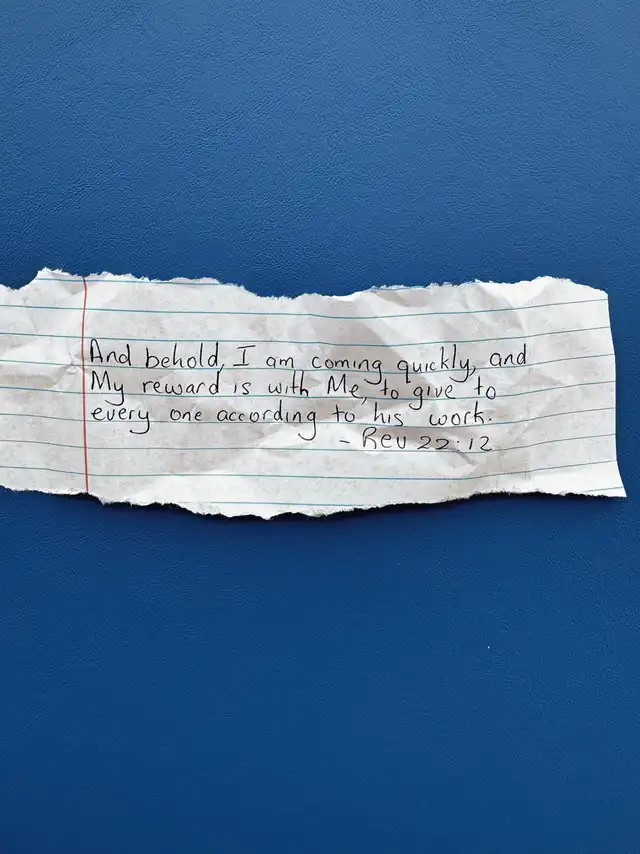 And behold, I am coming quickly, and
My reward is with Me, to give to
every one according to his work.
- Rev 22:12